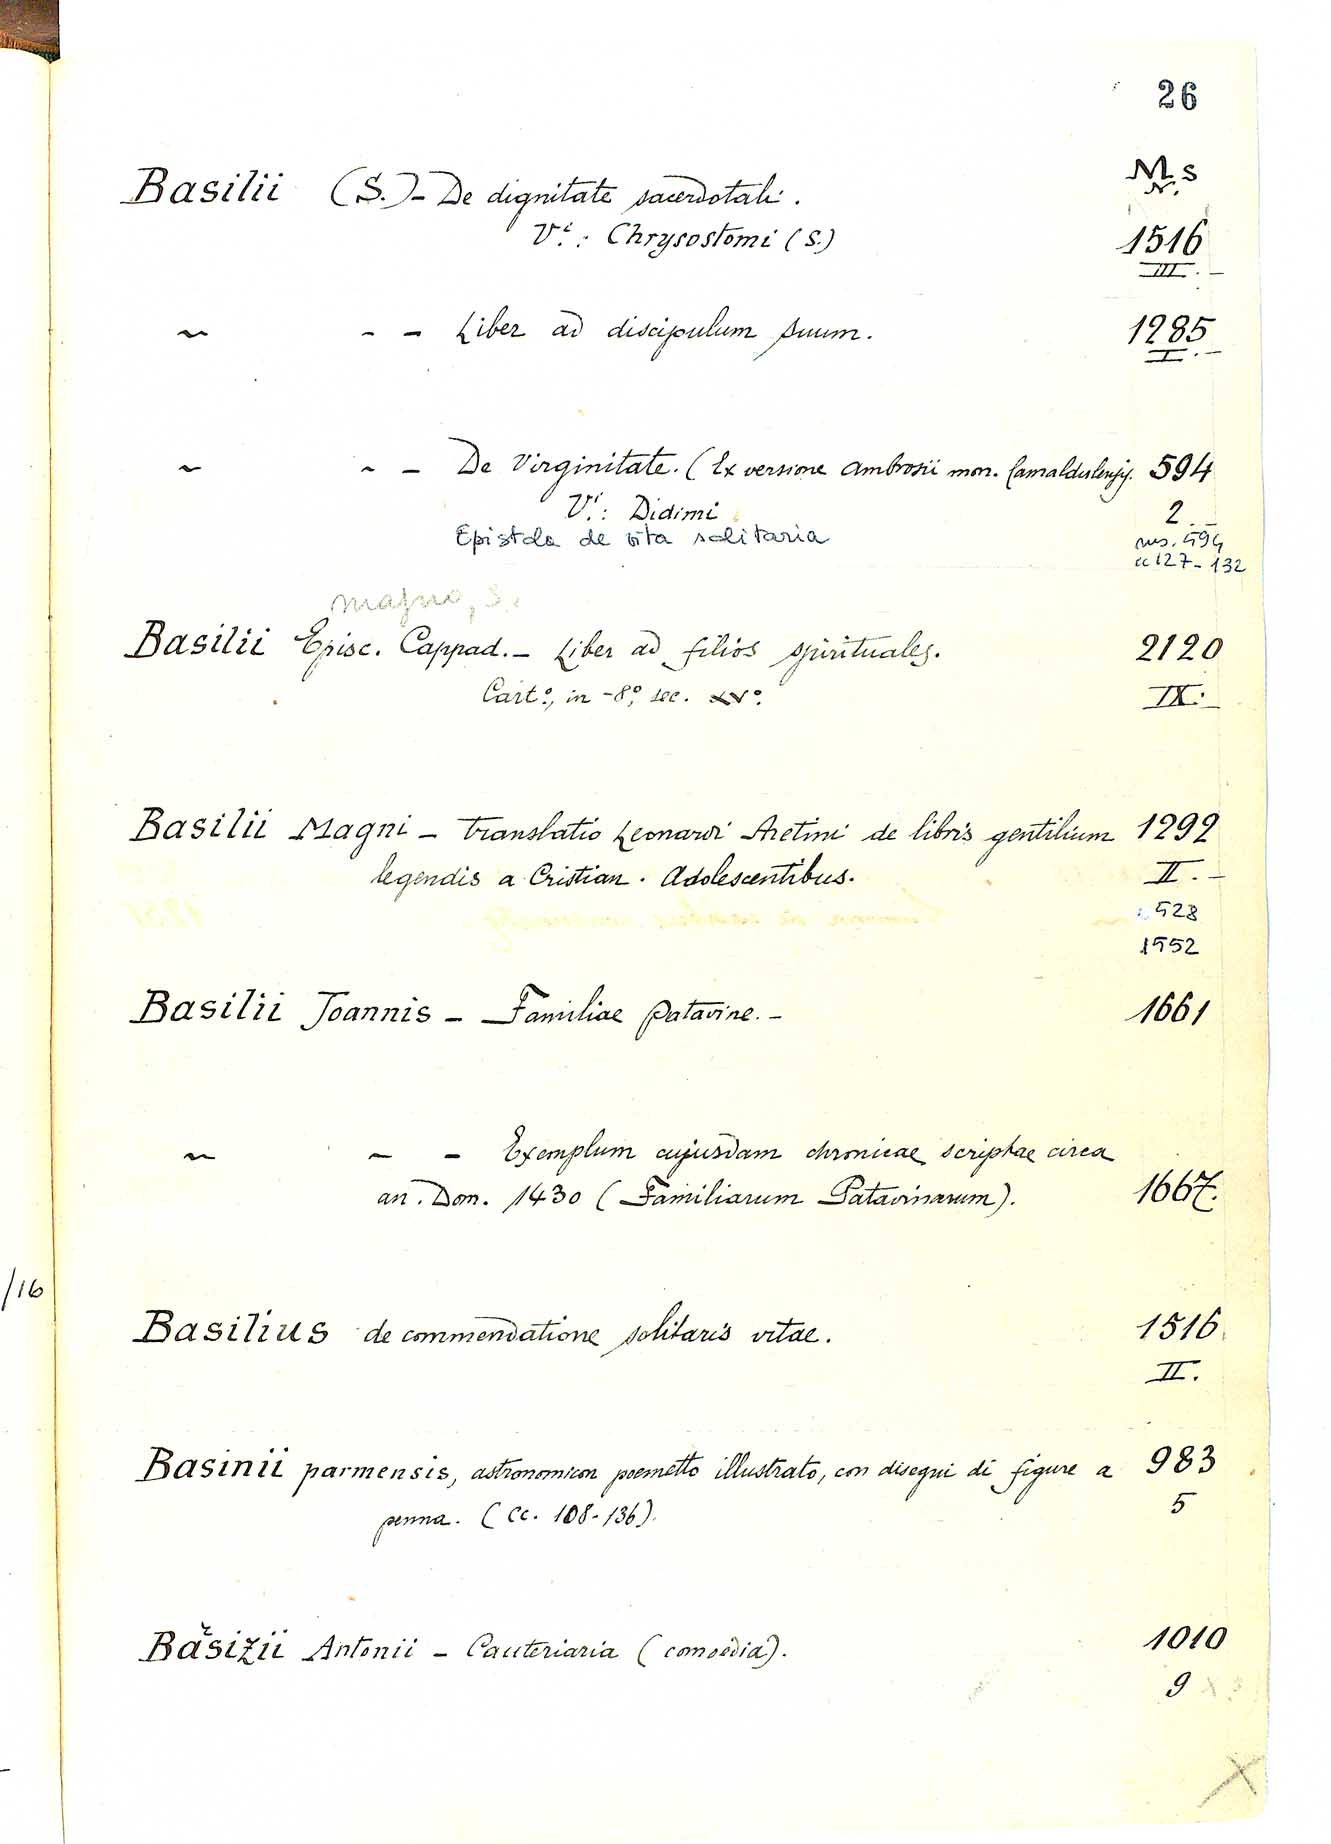 26
Ms
N.
Basilii (S.) - De dignitate sacerdotali.
V.i: Chrysostomi (S.) 1516
III. -
~ - - Liber ad discipulum suum. 1285
I. -
~ ~ - De Virginitate. (Ex versione Ambrosii mon. Camaldulensis. 594
V.i: Didimi 2. -
Epistola de vita solitaria ms. 594
cc 127-132
magno, S.
Basilii Episc. Cappad. - Liber ad filios spirituales. 2120
Cart.º, in -8º, sec. XVº. IX. -
Basilii Magni - Translatio Leonardi Aretini de libris gentilium 1292
legendis a Cristian. Adolescentibus. II. -
528
1552
Basilii Joannis - Familiae Patavine. - 1661
~ ~ - Exemplum cujusdam chronicae scriptae circa
an. Dom. 1430 (Familiarum Patavinarum). 1667.
/16
Basilius de commendatione solitaris vitae. 1516
II.
Basinii parmensis, astronomicon poemetto illustrato, con disegni di figure a 983
penna. (cc. 108-136). 5
Barsizii Antonii - Cauteriaria (comoedia). 1010
9
X